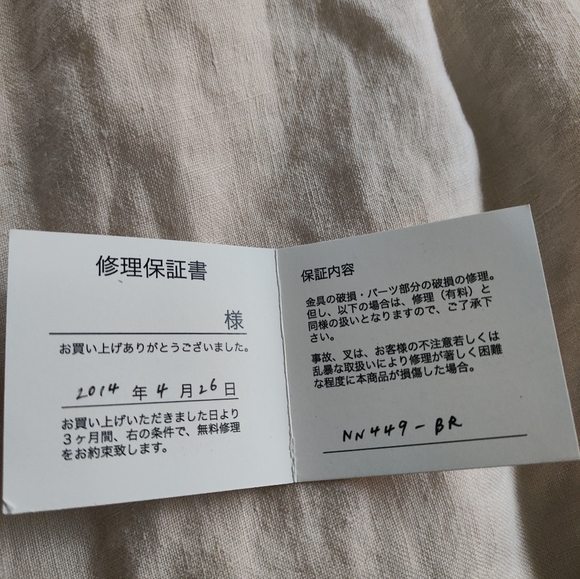 修理保証書
様
お買い上げありがとうございました。
2014 年 4 月 26 日
お買い上げいただきました日より
3ヶ月間、右の条件で、無料修理
をお約束致します。
保証内容
金具の破損・パーツ部分の破損の修理。
但し、以下の場合は、修理（有料）と
同様の扱いとなりますので、ご了承下
さい。
事故、又は、お客様の不注意若しくは
乱暴な取扱いにより修理が著しく困難
な程度に本商品が損傷した場合。
NN449-BR